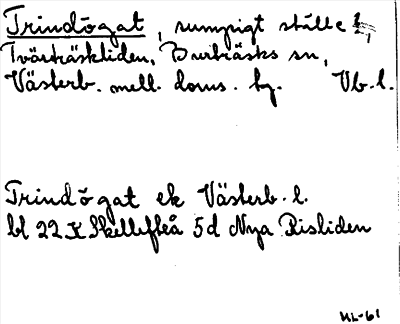 Trindögat, sumpigt ställe i
Tvärträskliden, Burträsks sn,
Västerb. mell. doms. hg. Vb. l.
Trindögat ek Västerb. l.
bl 22 K Skellefteå 5d Nya Risliden
ML-61